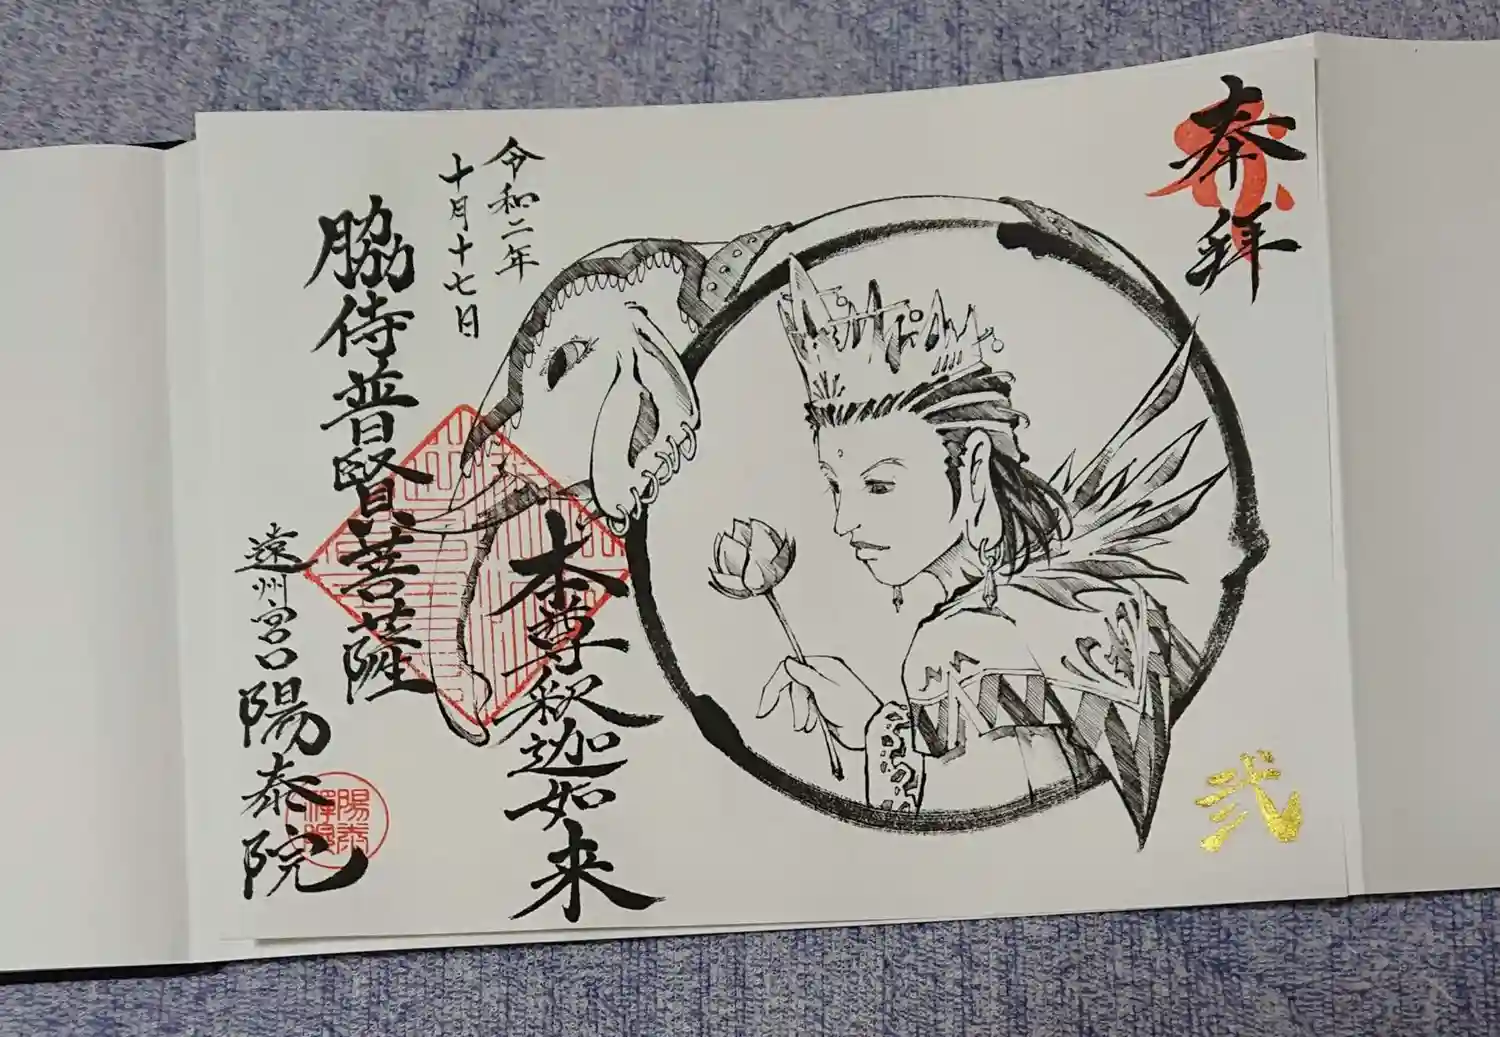 奉拝
弐
本尊釈迦如来
令和二年
十月十七日
脇侍普賢菩薩
遠州宮口
陽泰院